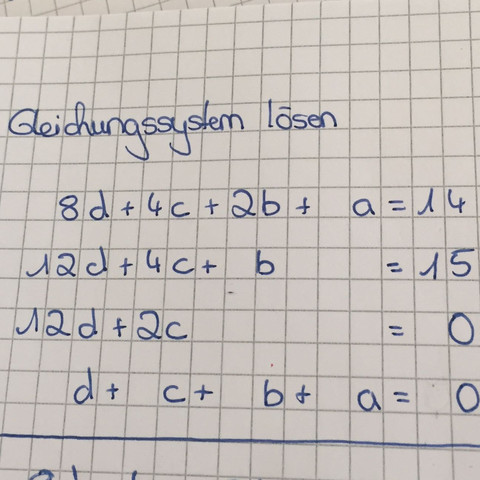 Gleichungssystem lösen
8d + 4c + 2b + a = 14
12d + 4c + b = 15
12d + 2c = 0
d + c + b + a = 0